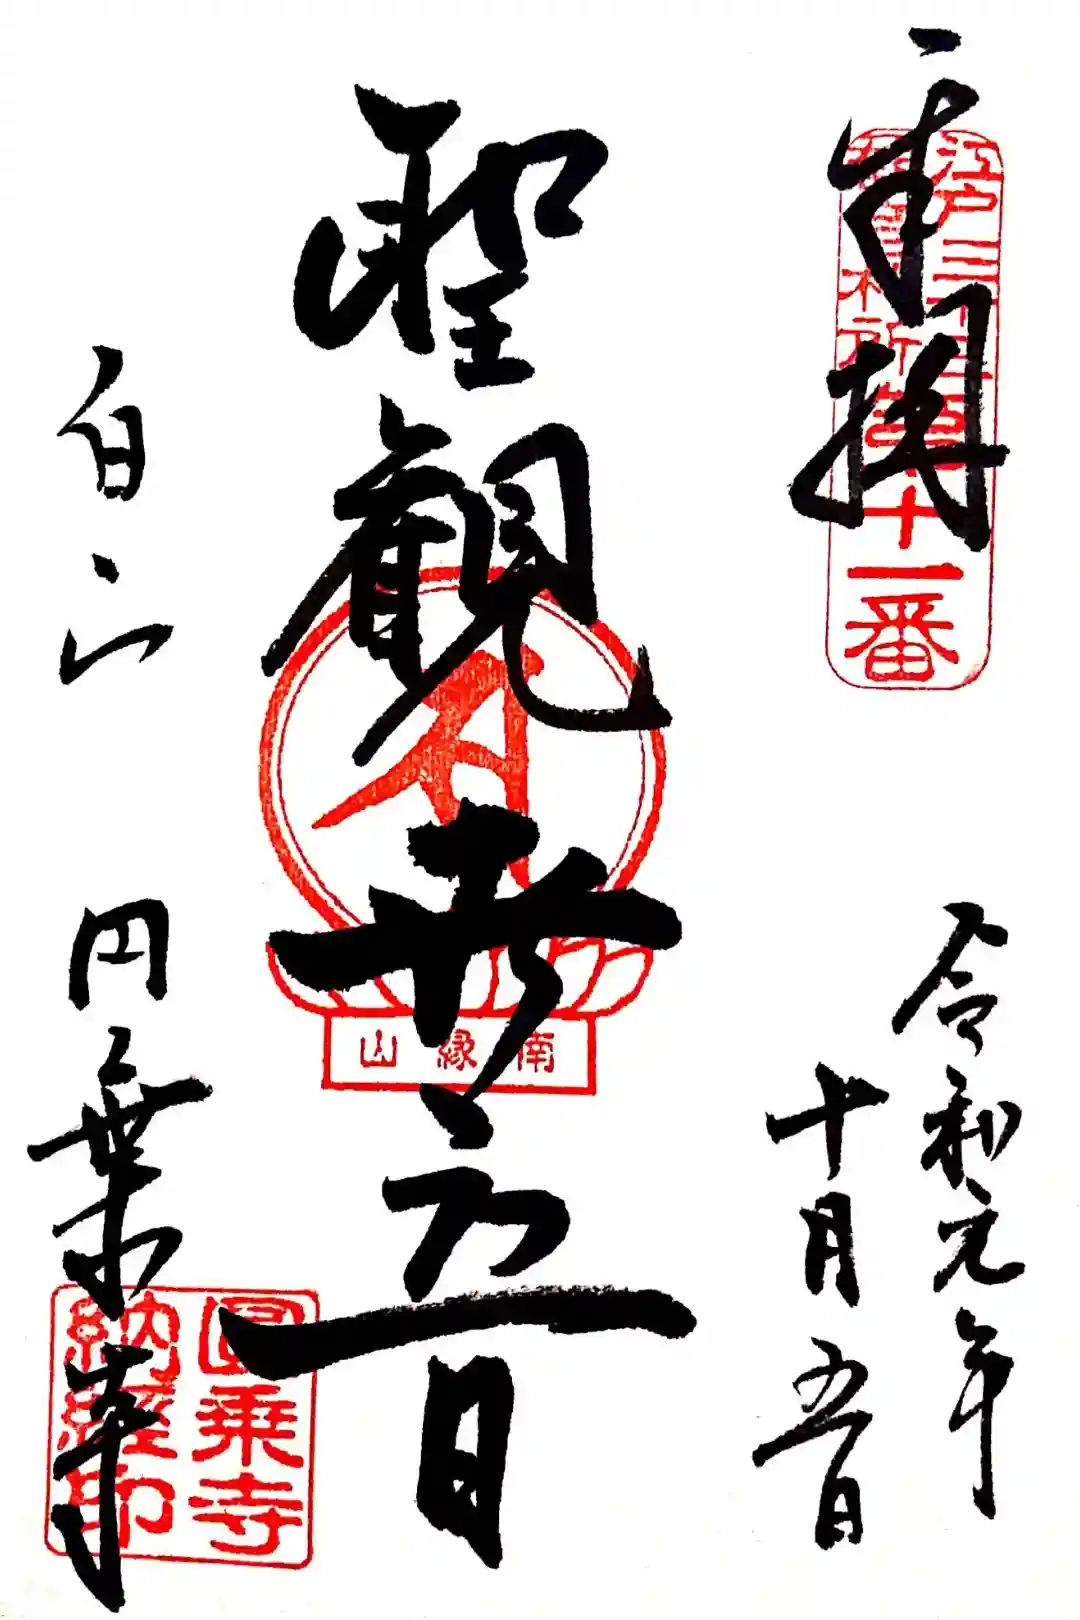 奉拝
江戸三十三観音
札所第十一番
令和元年
十月五日
聖観世音
南縁山
白山
円乗寺
圓乗寺
納経印